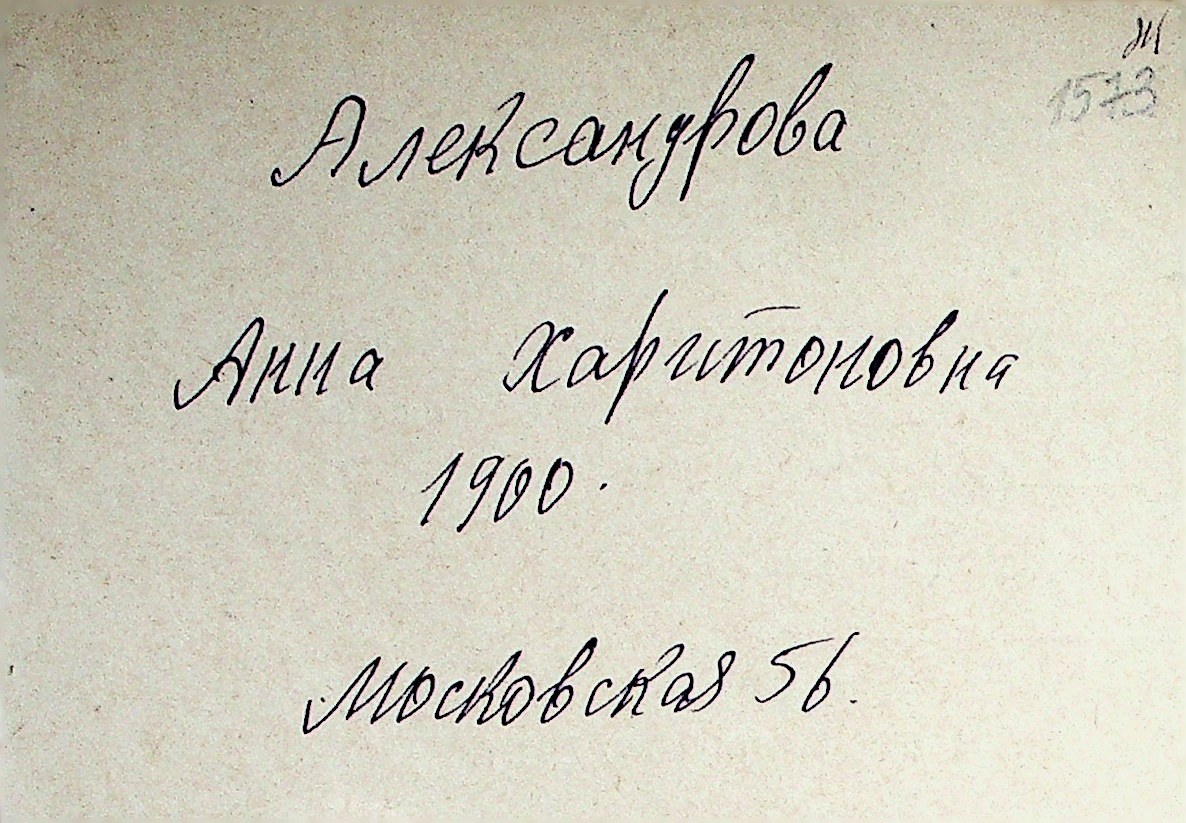 1573
Александрова
Анна Харитоновна
1900.
Московская 56.